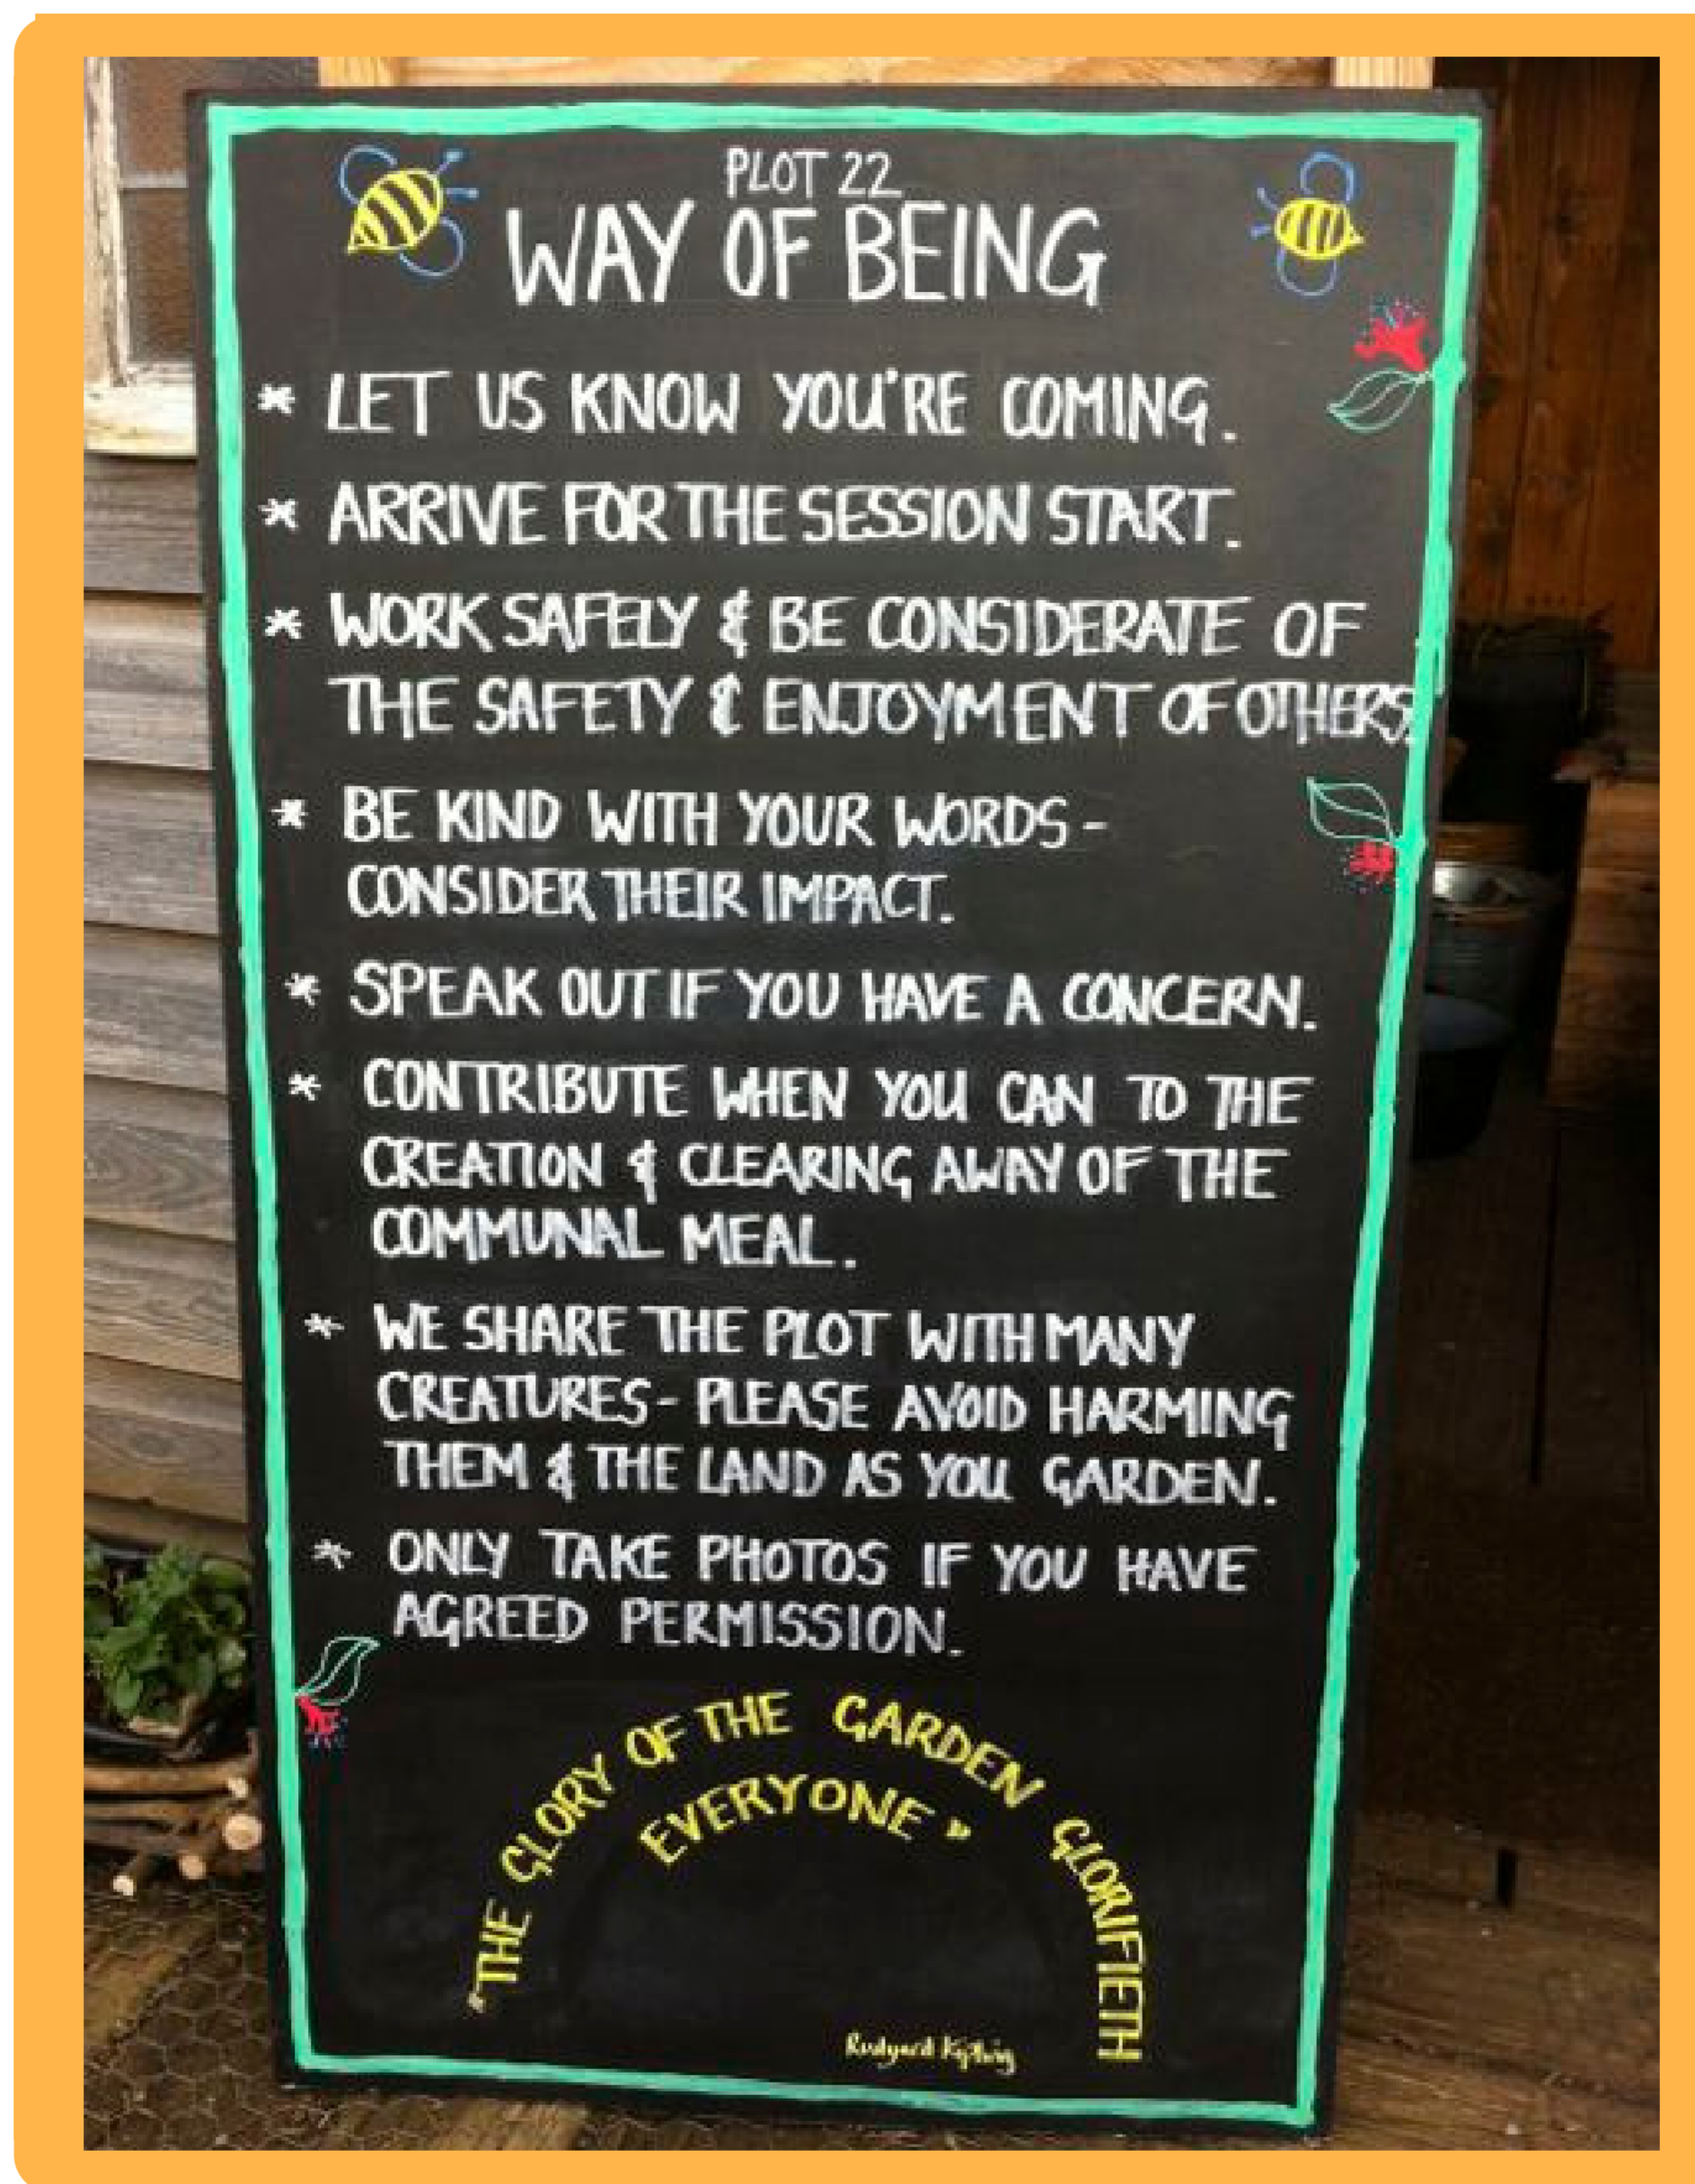 PLOT 22
WAY OF BEING
* LET US KNOW YOU'RE COMING.
* ARRIVE FOR THE SESSION START.
* WORK SAFELY & BE CONSIDERATE OF
THE SAFETY & ENJOYMENT OF OTHERS.
* BE KIND WITH YOUR WORDS -
CONSIDER THEIR IMPACT.
* SPEAK OUT IF YOU HAVE A CONCERN.
* CONTRIBUTE WHEN YOU CAN TO THE
CREATION & CLEARING AWAY OF THE
COMMUNAL MEAL.
* WE SHARE THE PLOT WITH MANY
CREATURES - PLEASE AVOID HARMING
THEM & THE LAND AS YOU GARDEN.
* ONLY TAKE PHOTOS IF YOU HAVE
AGREED PERMISSION.
"THE GLORY OF THE GARDEN GLORIFIETH
EVERYONE"
Rudyard Kipling